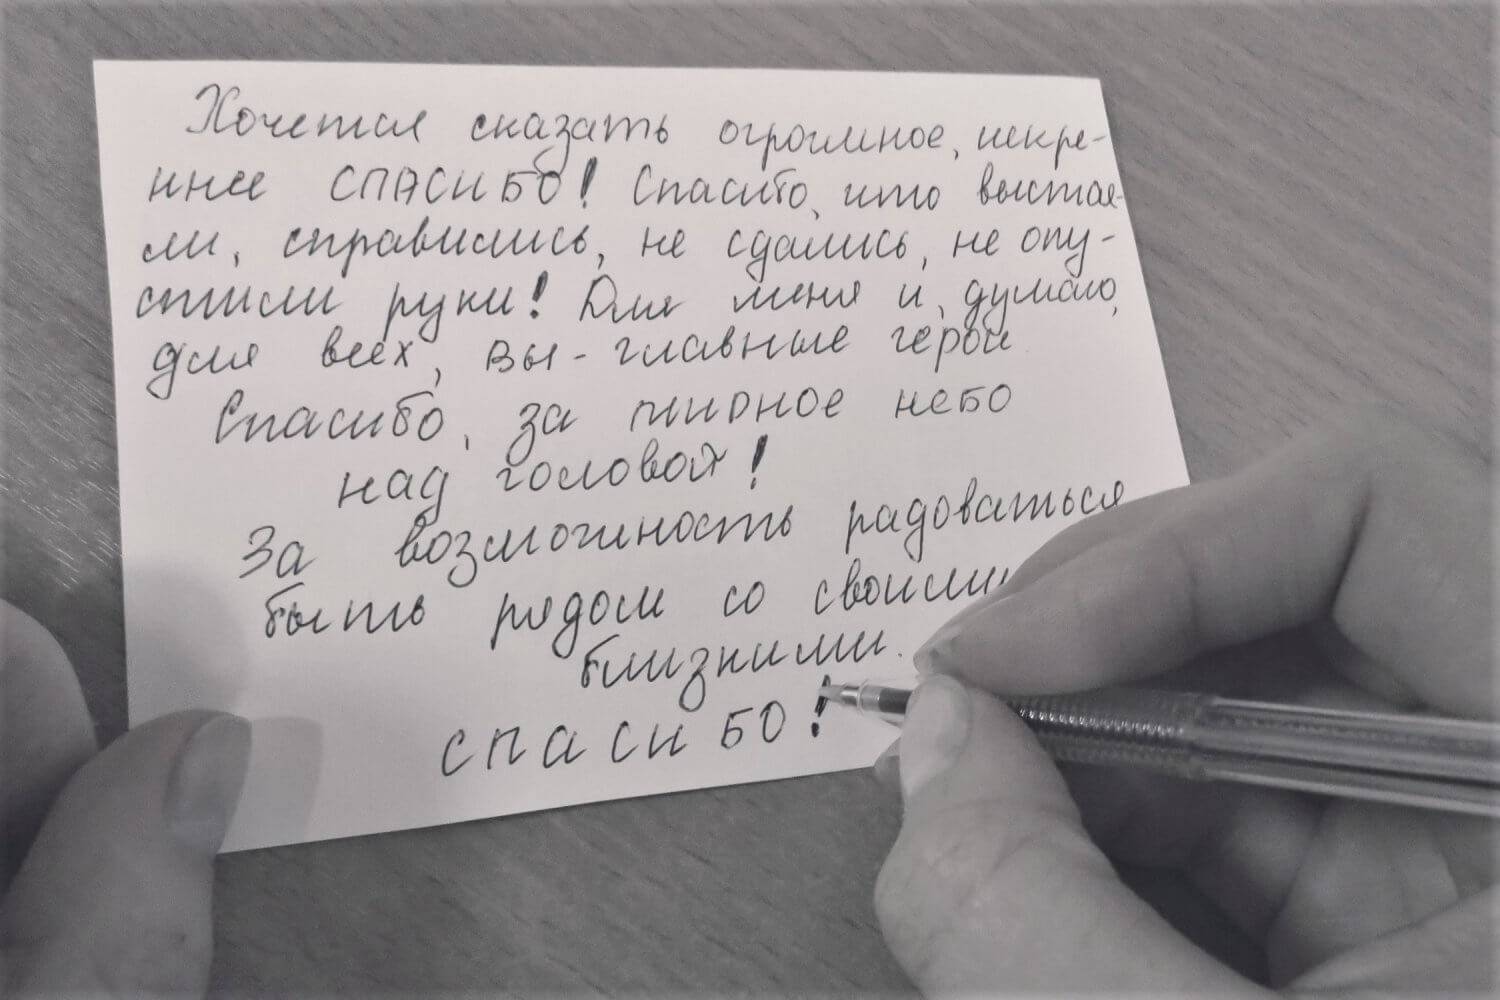 Хочется сказать огромное, искре-
ннее СПАСИБО! Спасибо, что выстоя-
ли, справились, не сдались, не опу-
стили руки! Для меня и, думаю,
для всех, вы - главные герои
Спасибо, за мирное небо
над головой!
За возможность радоваться
быть рядом со своими
близкими.
СПАСИБО!